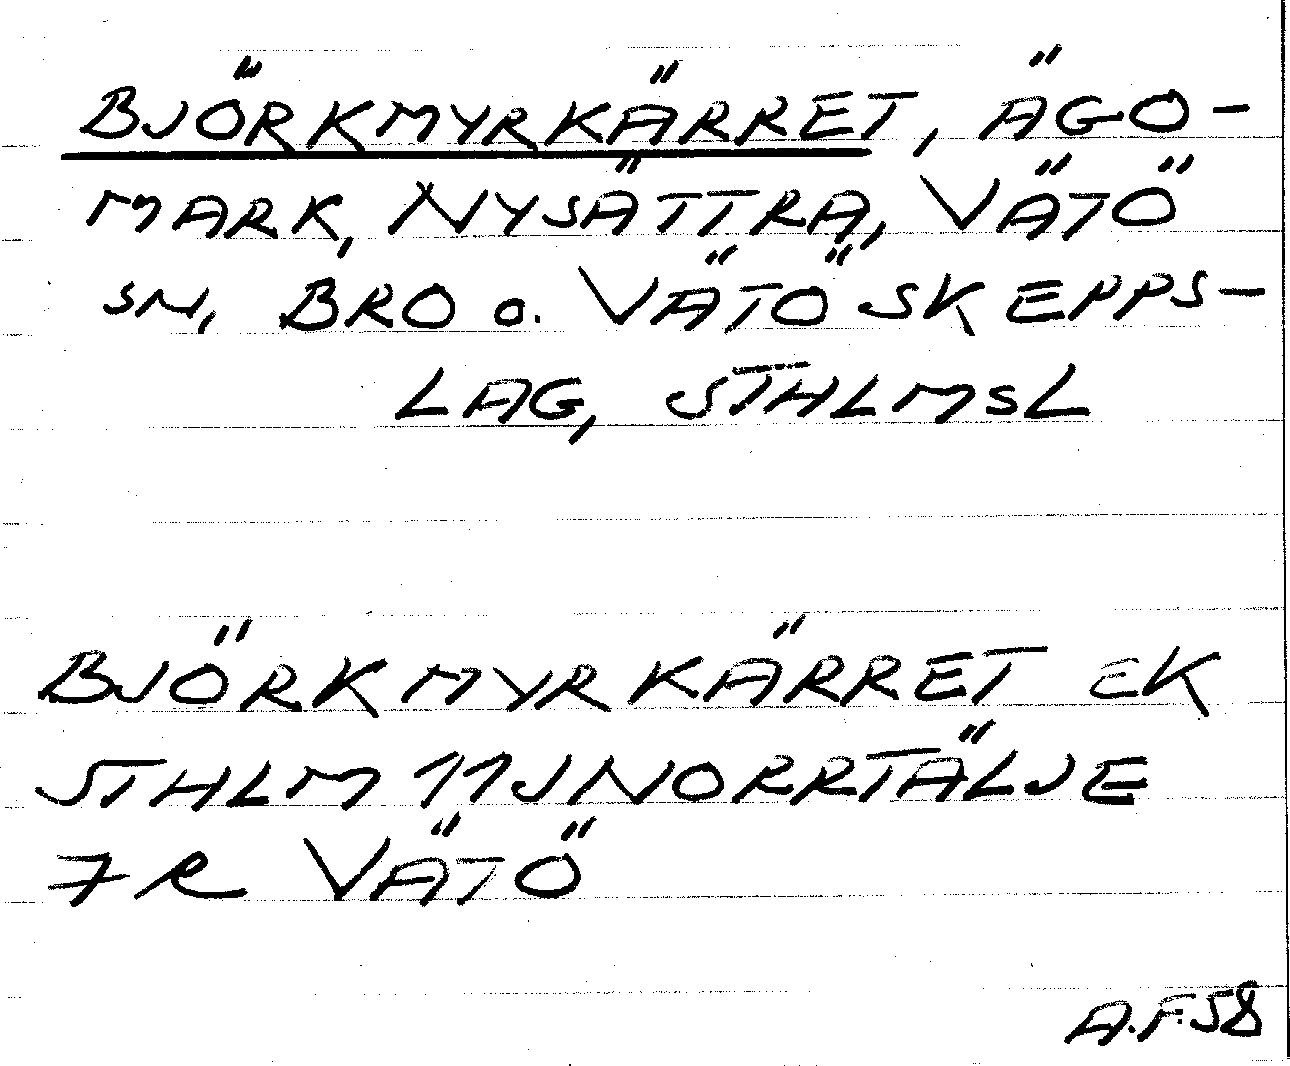 BJÖRKMYRKÄRRET, ÄGO-
MARK, NYSÄTTRA, VÄTÖ
SN, BRO o. VÄTÖ SKEPPS-
LAG, STHLMSL
BJÖRKMYRKÄRRET EK
STHLM 11J NORRTÄLJE
7R VÄTÖ
A.F. 58